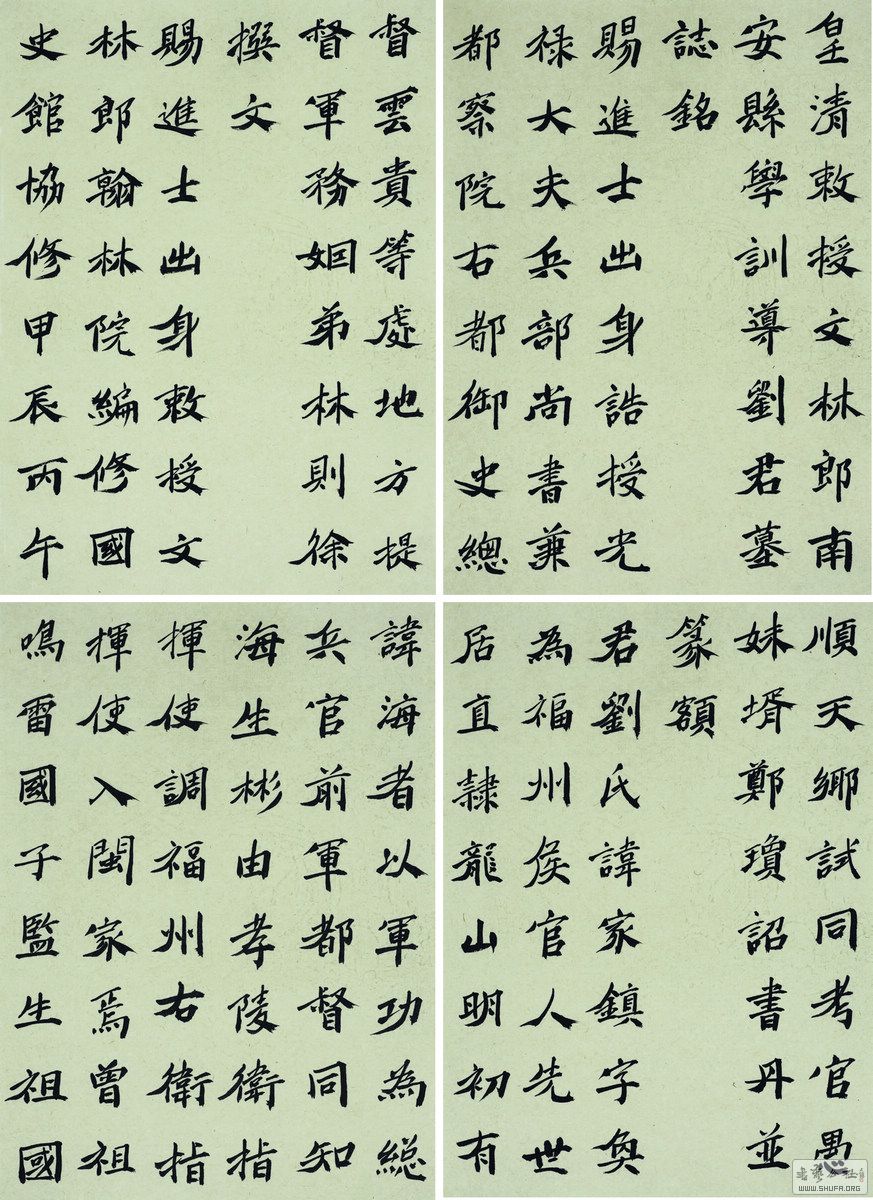 皇清敕授文林郎南
安縣學訓導劉君墓
誌銘
賜進士出身誥授光
祿大夫兵部尚書兼
都察院右都御史總
督雲貴等處地方提
督軍務姻弟林則徐
撰文
賜進士出身敕授文
林郎翰林院編修國
史館協修甲辰丙午
順天鄉試同考官愚
妹壻鄭瓊詔書丹並
篆額
君劉氏諱家鎮字奐
為福州侯官人先世
居直隸龍山明初有
諱海者以軍功為總
兵官前軍都督同知
海生彬由孝陵衛指
揮使調福州右衛指
揮使入閩家焉曾祖
鳴雷國子監生祖國
WWW.SHUFA.ORG